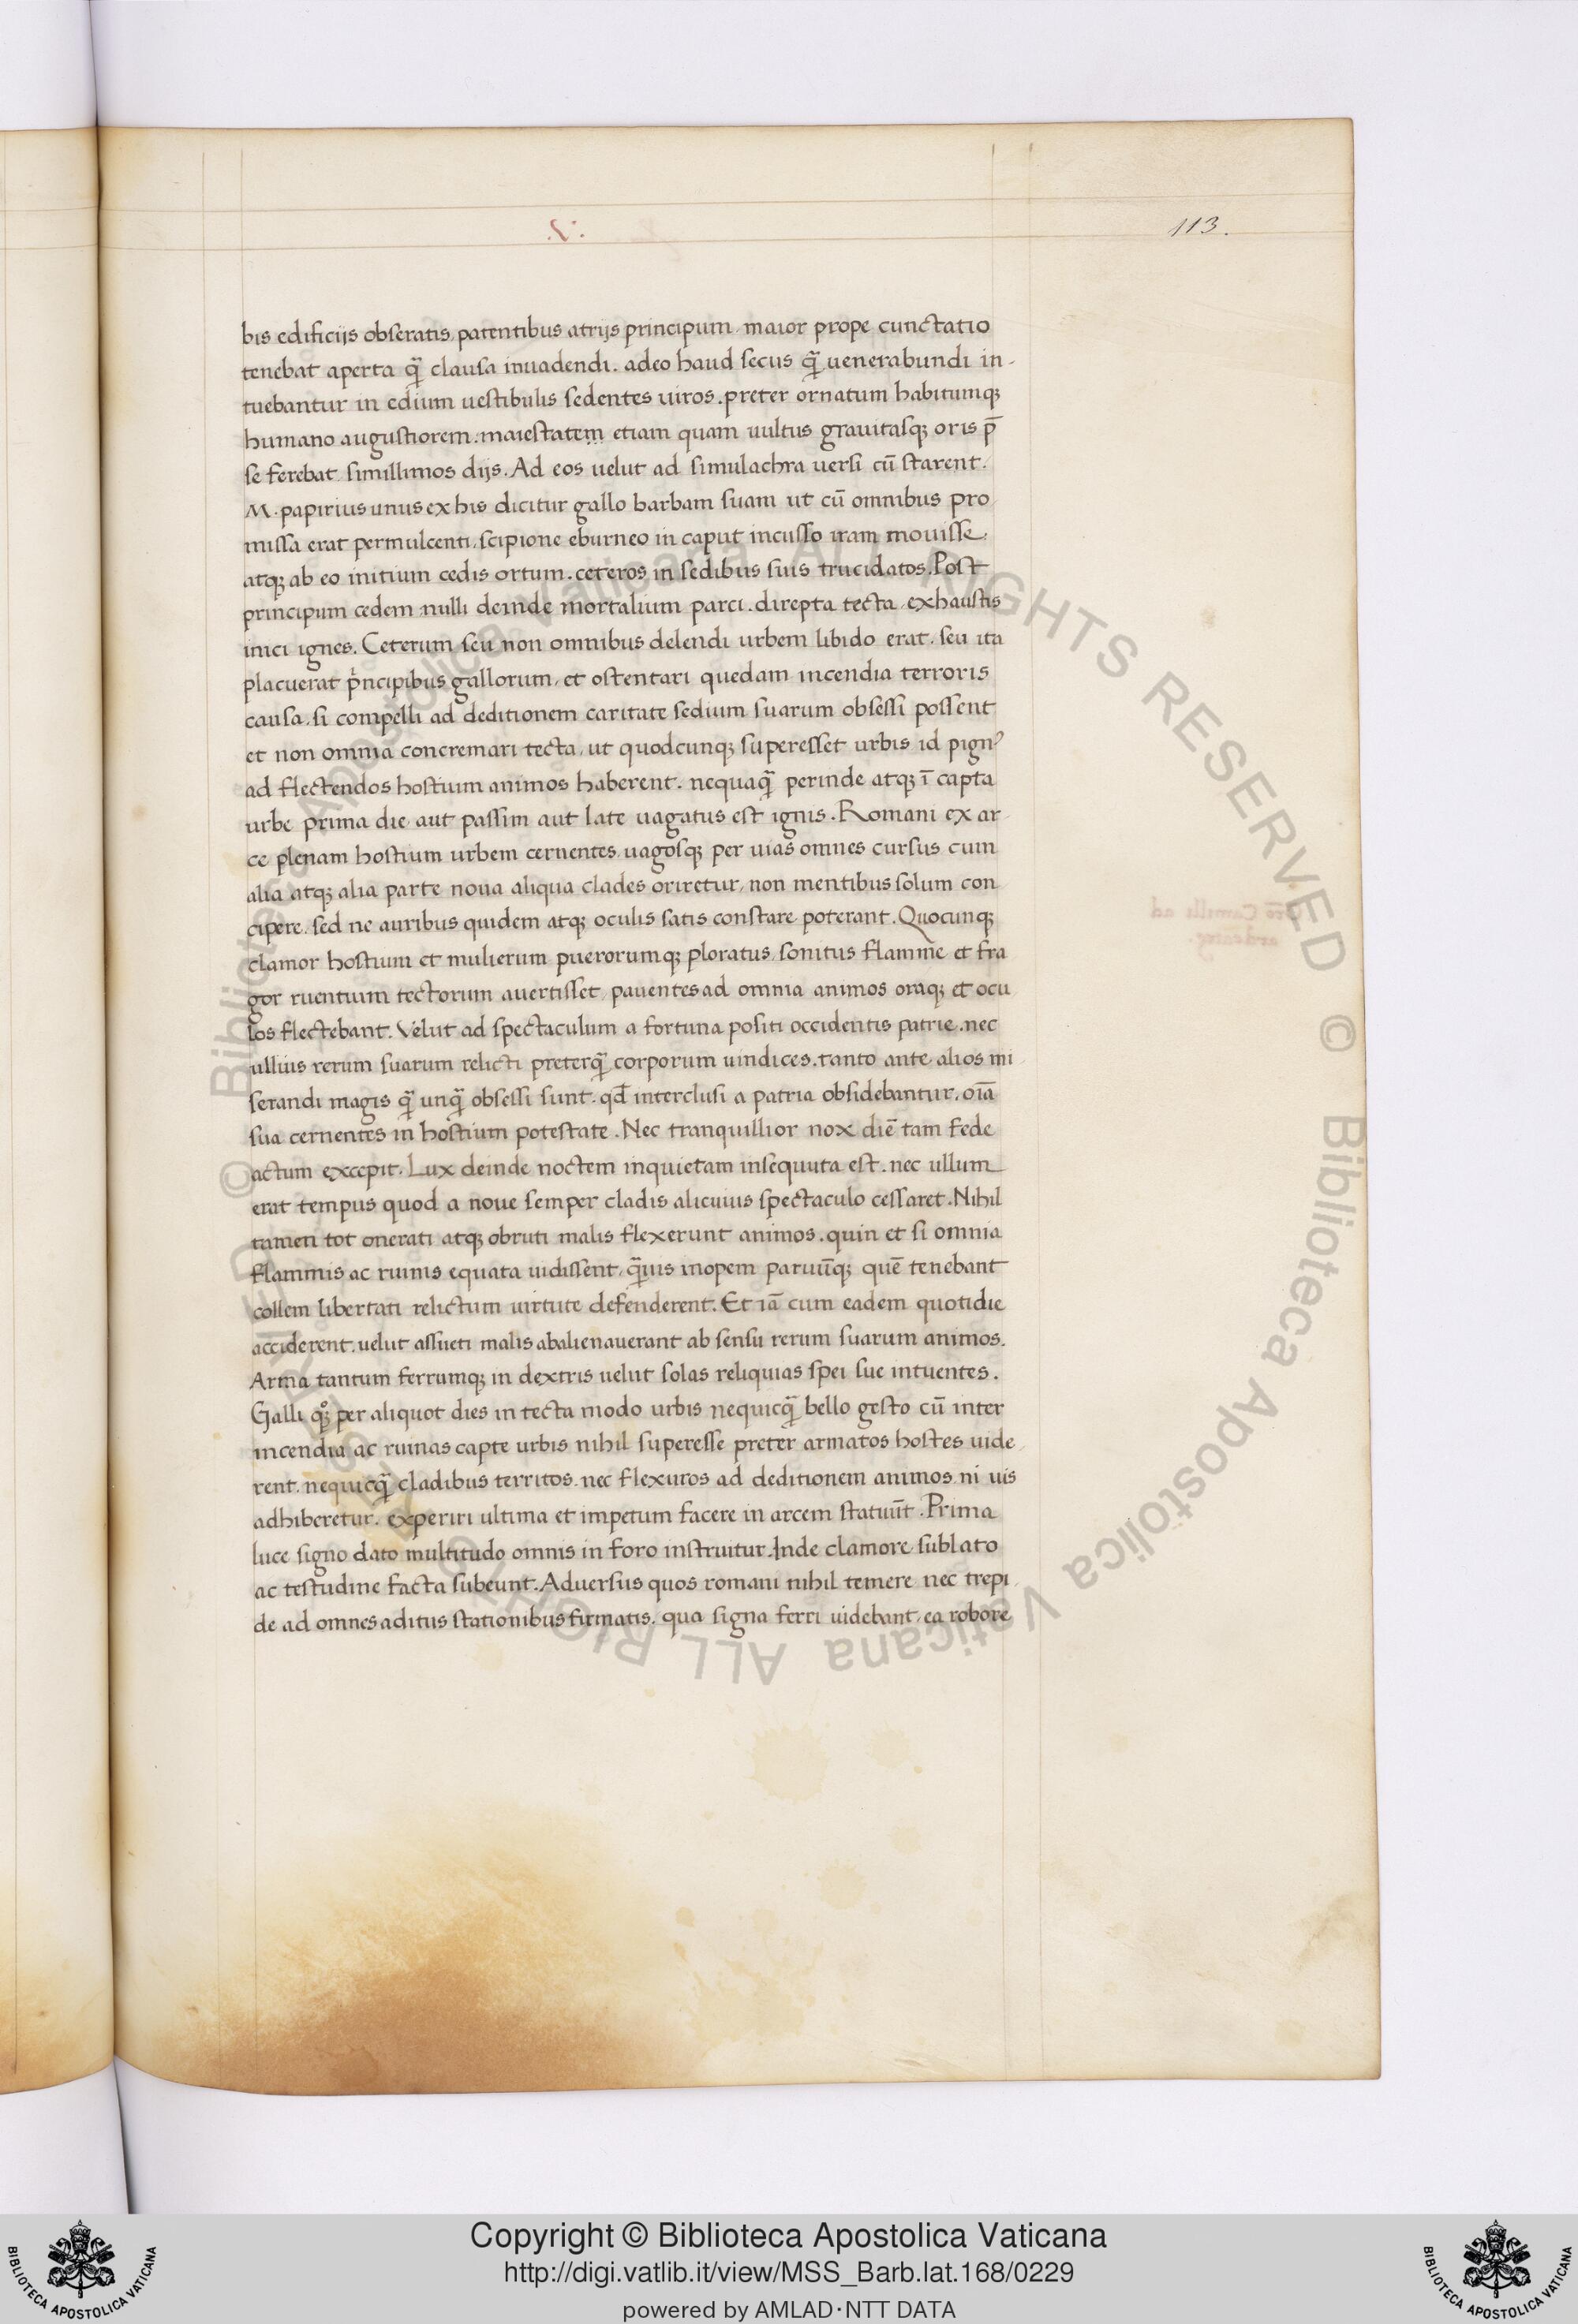 .V.
113.
bis edificiis obseratis, patentibus atrijs principum, maior prope cunctatio
tenebat aperta q̄ clausa inuadendi. adeo haud secus q̄ uenerabundi in-
tuebantur in edium uestibulis sedentes uiros. preter ornatum habitumq;
humano augustiorem. maiestatem etiam quam uultus grauitasq; oris p̄
se ferebat simillimos dijs. Ad eos uelut ad simulachra uersi cū starent.
M. papirius unus ex his dicitur gallo barbam suam ut cū omnibus pro
missa erat permulcenti, scipione eburneo in caput incusso iram mouisse.
atq; ab eo initium cedis ortum. ceteros in sedibus suis trucidatos. Post
principum cedem nulli deinde mortalium parci. direpta tecta, exhaustis
inici ignes. Ceterum seu non omnibus delendi urbem libido erat. seu ita
placuerat pͥncipibus gallorum, et ostentari quedam incendia terroris
causa, si compelli ad deditionem caritate sedium suarum obsessi possent
et non omnia concremari tecta, ut quodcunq; superesset urbis id pignꝰ
ad flectendos hostium animos haberent. nequaq̄ perinde atq; ī capta
urbe prima die aut passim aut late uagatus est ignis. Romani ex ar
ce plenam hostium urbem cernentes, uagosq; per uias omnes cursus cum
alia atq; alia parte noua aliqua clades oriretur, non mentibus solum con
cipere, sed ne auribus quidem atq; oculis satis constare poterant. Quocunq;
clamor hostium et mulierum puerorumq; ploratus, sonitus flamme et fra
gor ruentium tectorum auertisset, pauentes ad omnia animos oraq; et ocu
los flectebant. Velut ad spectaculum a fortuna positi occidentis patrie. nec
ullius rerum suarum relicti preterq̄ corporum uindices. tanto ante alios mi
serandi magis q̄ unq̄ obsessi sunt. qđ interclusi a patria obsidebantur. oīa
sua cernentes in hostium potestate. Nec tranquillior nox diē tam fede
actum excepit. Lux deinde noctem inquietam insequuta est. nec ullum
erat tempus quod a noue semper cladis alicuius spectaculo cessaret. Nihil
tamen tot onerati atq; obruti malis flexerunt animos. quin et si omnia
flammis ac ruinis equata uidissent, q̄uis inopem paruūq; quē tenebant
collem libertati relictum uirtute defenderent. Et iā cum eadem quotidie
acciderent. uelut assueti malis abalienauerant ab sensu rerum suarum animos.
Arma tantum ferrumq; in dextris uelut solas reliquias spei sue intuentes.
Galli qͦ; per aliquot dies in tecta modo urbis nequicq̄ bello gesto cū inter
incendia ac ruinas capte urbis nihil superesse preter armatos hostes uide
rent. nequicq̄ cladibus territos. nec flexuros ad deditionem animos ni uis
adhiberetur. experiri ultima et impetum facere in arcem statuūt. Prima
luce signo dato multitudo omnis in foro instruitur. Inde clamore sublato
ac testudine facta subeunt. Aduersus quos romani nihil temere nec trepi
de ad omnes aditus stationibus firmatis. qua signa ferri uidebant, ea robore
© Biblioteca Apostolica Vaticana ALL RIGHTS RESERVED
© Biblioteca Apostolica Vaticana ALL RIGHTS RESERVED
Copyright © Biblioteca Apostolica Vaticana
http://digi.vatlib.it/view/MSS_Barb.lat.168/0229
powered by AMLAD·NTT DATA
BIBLIOTECA APOSTOLICA VATICANA
BIBLIOTECA APOSTOLICA VATICANA